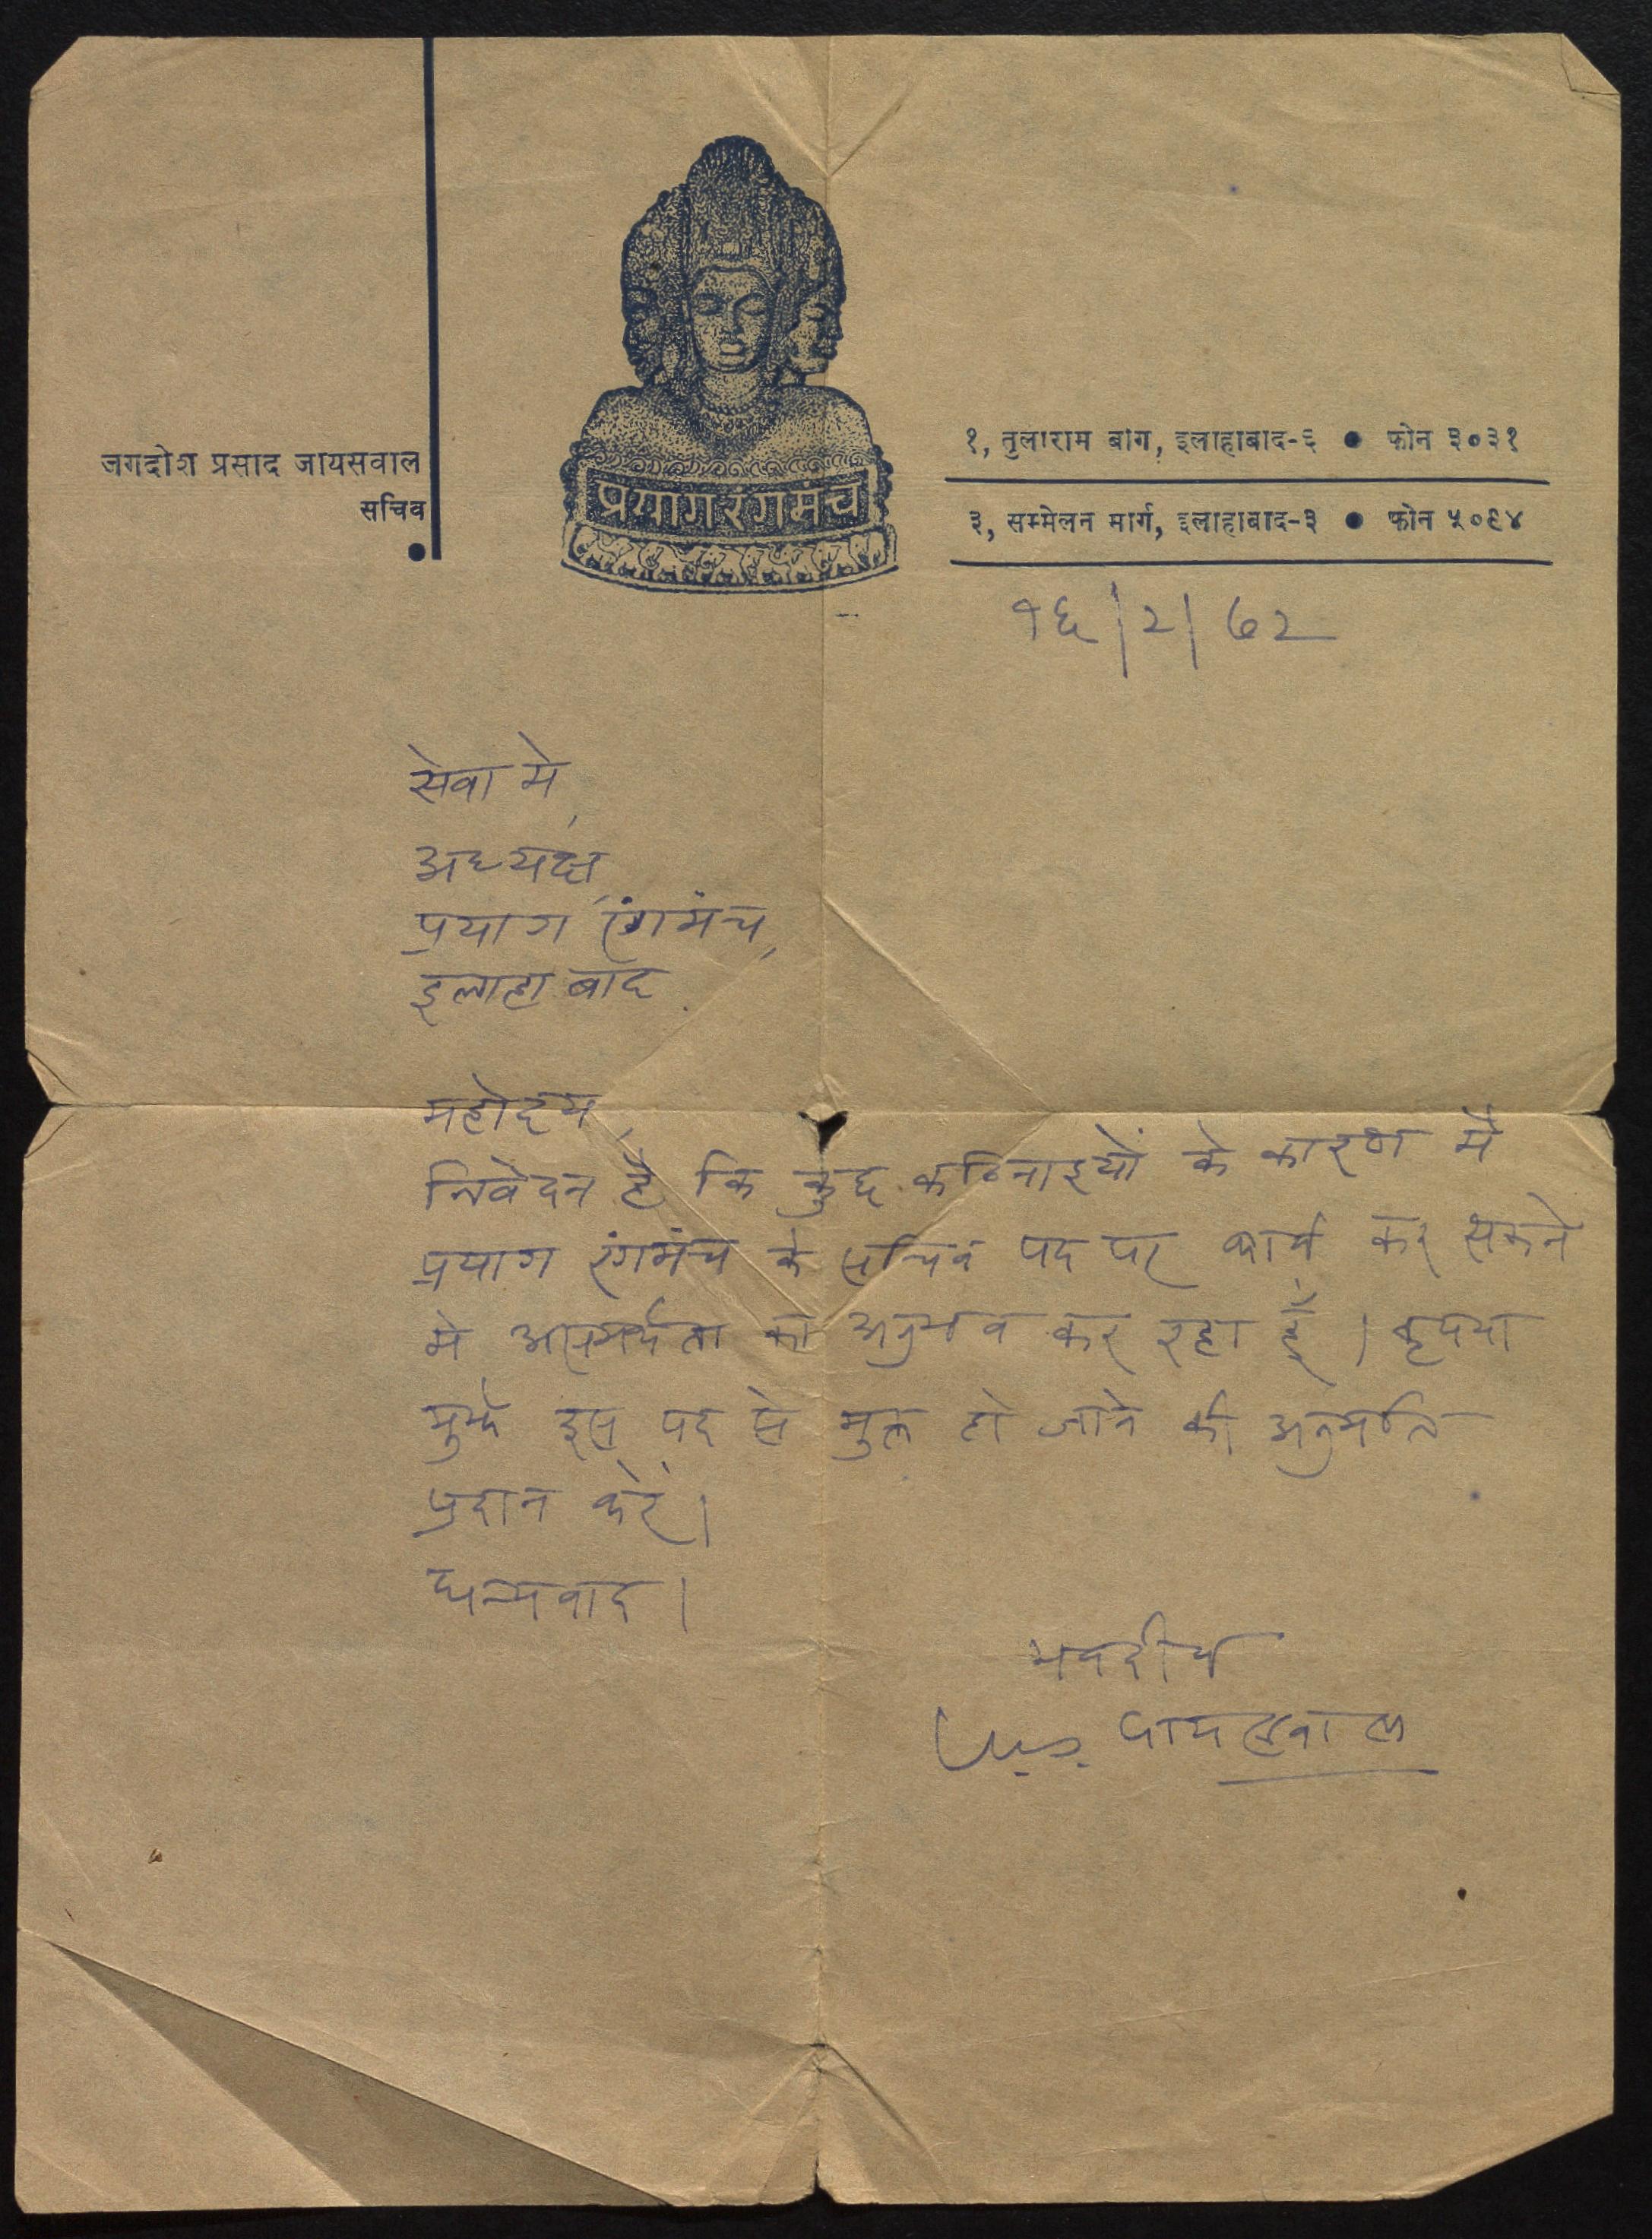 जगदीश प्रसाद जायसवाल
सचिव
प्रयाग रंगमंच
१, तुलाराम बाग, इलाहाबाद-६ ● फोन ३०३१
३, सम्मेलन मार्ग, इलाहाबाद-३ ● फोन ५०९४
१६/२/७२
सेवा मे,
अध्यक्ष,
प्रयाग रंगमंच,
इलाहाबाद.
महोदय,
निवेदन है कि कुछ कठिनाइयों के कारण मै
प्रयाग रंगमंच के सचिव पद पर कार्य कर सकने
मे असमर्थता का अनुभव कर रहा हूँ । कृपया
मुझे इस पद से मुक्त हो जाने की अनुमति
प्रदान करें ।
धन्यवाद ।
भवदीय
जायसवाल